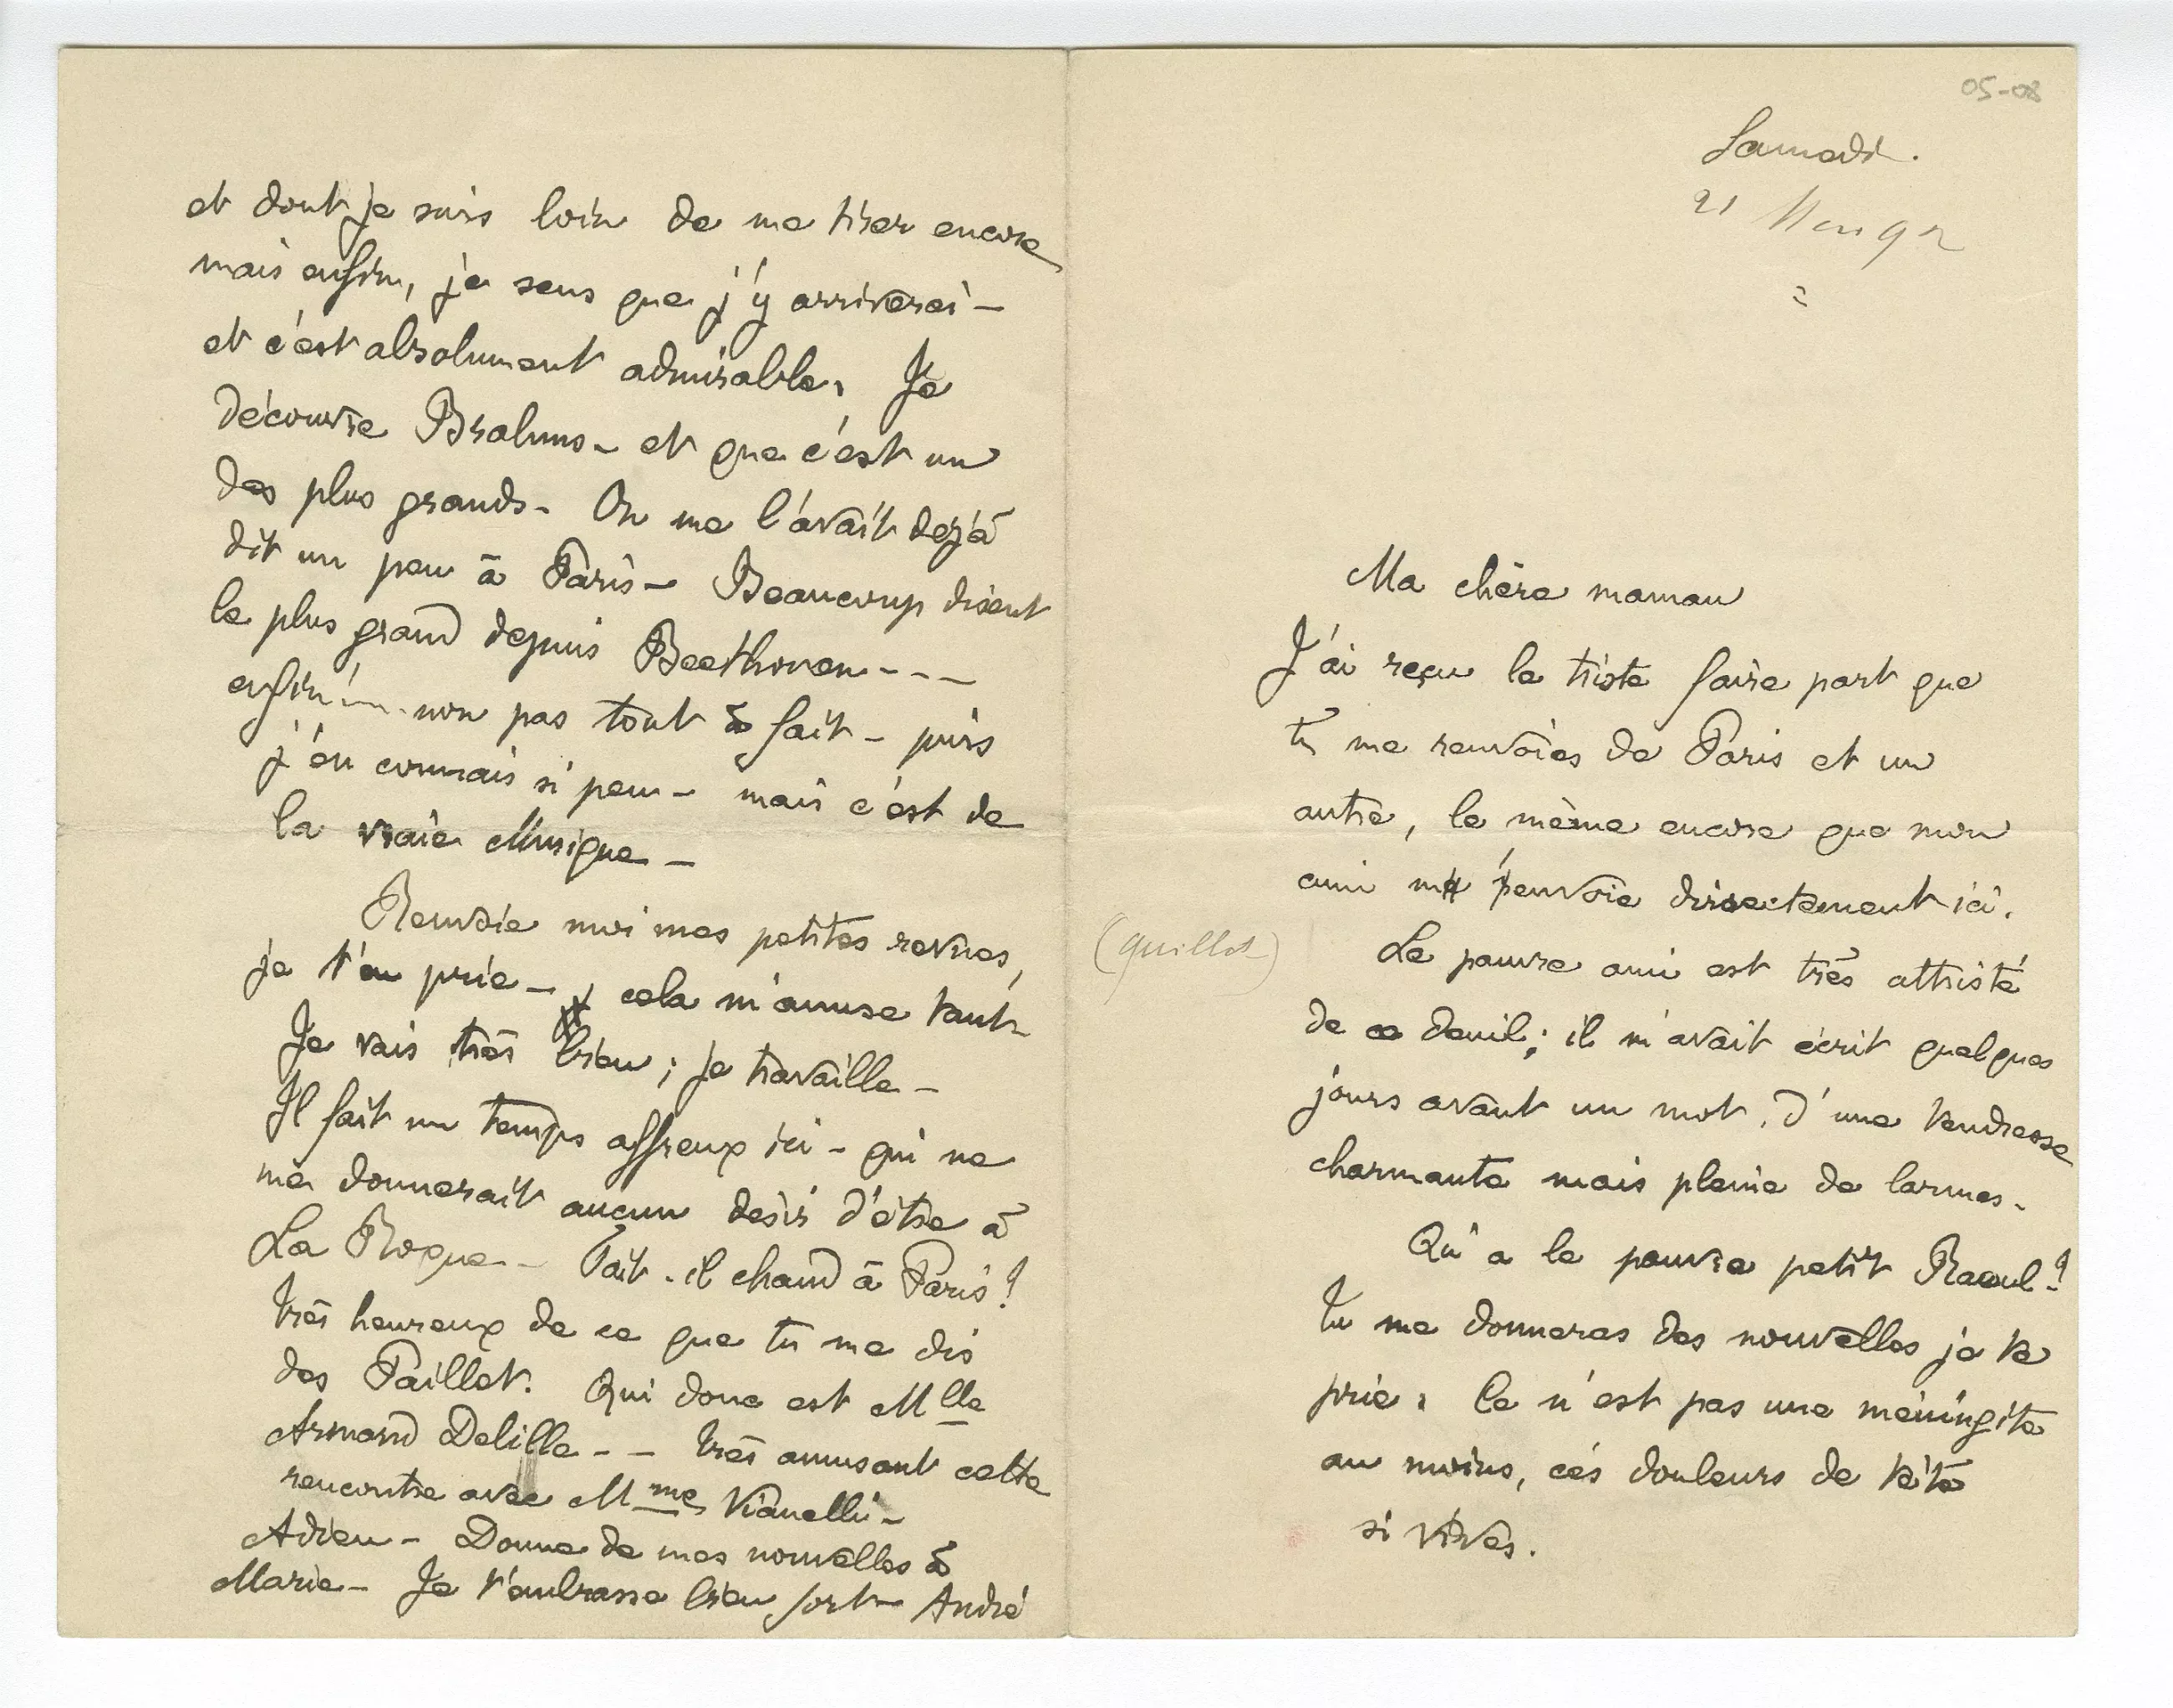 05-08
Samedi.
21 Mai 92
Ma chère maman
J'ai reçu le triste faire part que
tu me renvoies de Paris et un
autre, le même encore que mon
ami m' envoie directement ici.
(Quillot)
Le pauvre ami est très attristé
de ce deuil ; il m'avait écrit quelques
jours avant un mot, d'une tendresse
charmante mais pleine de larmes.
Qu'a le pauvre petit Raoul ?
Tu me donneras des nouvelles je te
prie. Ce n'est pas une méningite
au moins, ces douleurs de tête
si vives.
et dont je suis loin de me tirer encore
mais enfin, je sens que j'y arriverai -
et c'est absolument admirable. Je
découvre Brahms - et que c'est un
des plus grands - On me l'avait déjà
dit un peu à Paris - Beaucoup disent
le plus grand depuis Beethoven - - -
enfin .... non pas tout à fait - puis
j'en connais si peu - mais c'est de
la vraie Musique -
Renvoie moi mes petites revues,
je t'en prie - cela m'amuse tant -
Je vais très bien ; je travaille -
Il fait un temps affreux ici - qui ne
me donnerait aucun désir d'être à
La Roque - Fait-il chaud à Paris ?
Très heureux de ce que tu me dis
des Paillet. Qui donc est Mlle
Armand Delille - - Très amusant cette
rencontre avec Mme Vianelli -
Adieu - Donne de mes nouvelles à
Marie - Je t'embrasse bien fort - André